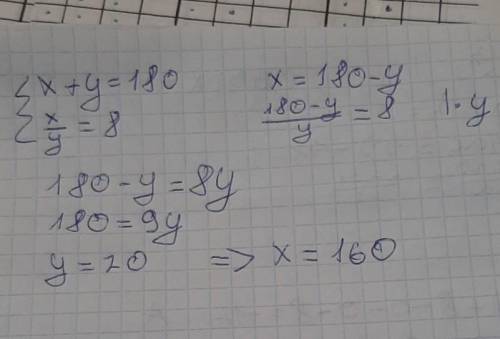 { x + y = 180    x = 180 - y
x/y = 8    (180 - y)/y = 8    | · y
180 - y = 8y
180 = 9y
y = 20    => x = 160